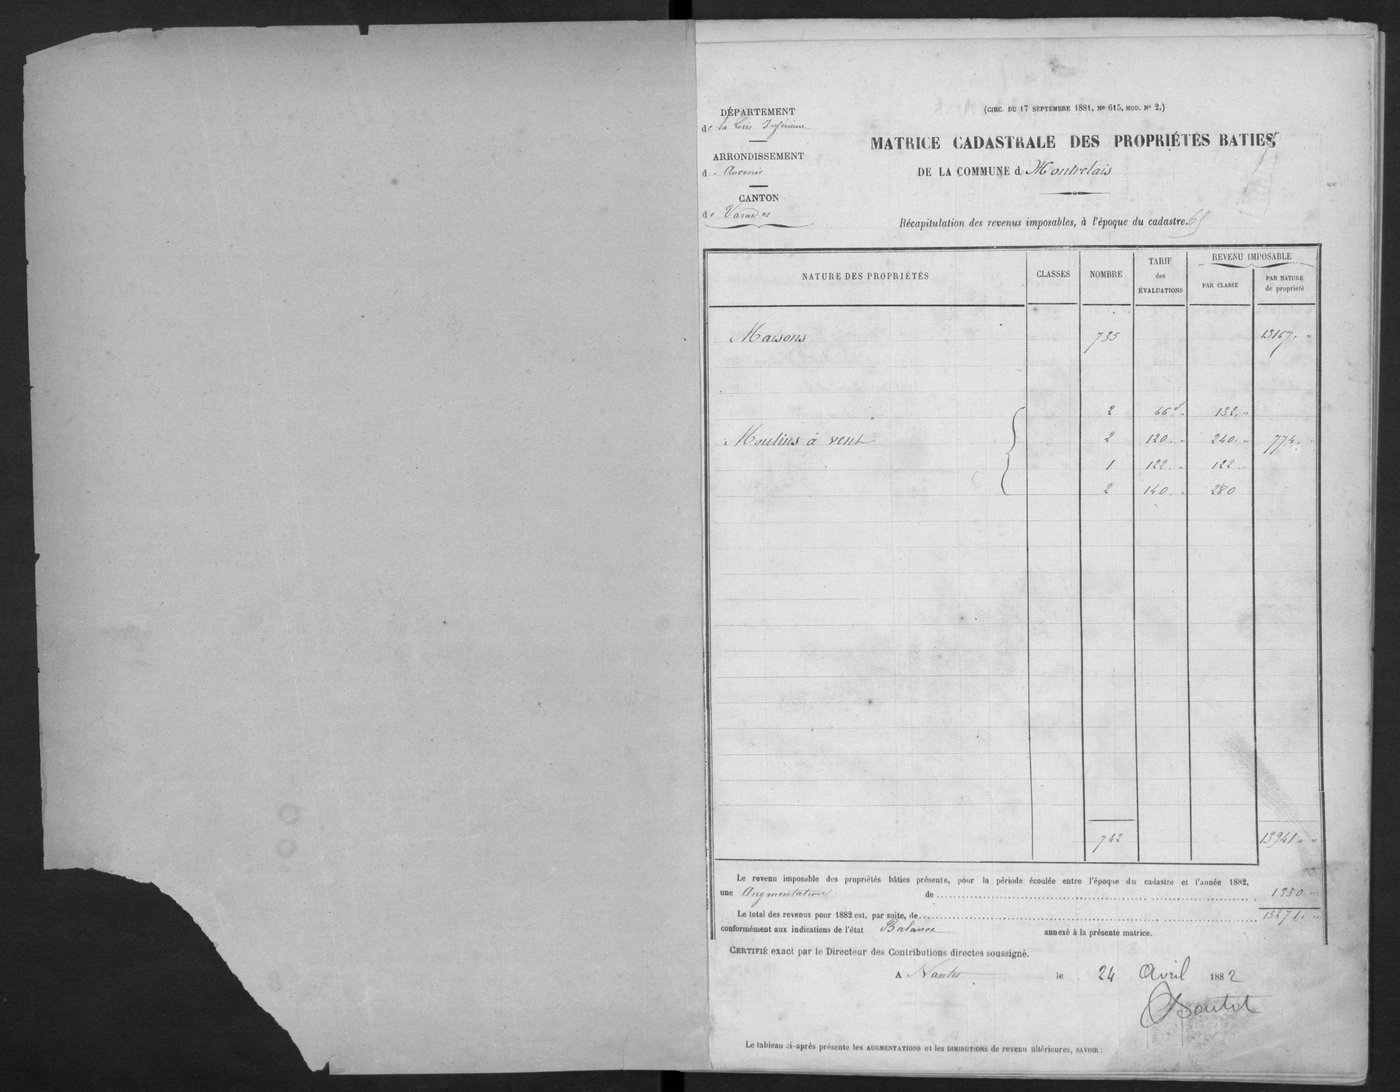 DÉPARTEMENT
de la Loire Inférieure
ARRONDISSEMENT
d'Ancenis
CANTON
de Varades
(CIRC. DU 17 SEPTEMBRE 1881, Nº 615, MOD. Nº 2.)
MATRICE CADASTRALE DES PROPRIÉTÉS BATIES
DE LA COMMUNE d Montrelais
Récapitulation des revenus imposables, à l'époque du cadastre.
NATURE DES PROPRIÉTÉS CLASSES NOMBRE TARIF des ÉVALUATIONS REVENU IMPOSABLE PAR CLASSE PAR NATURE de propriété
Maisons 735 13167 "
2 66 " 132 "
Moulins à vent 2 120 " 240 " 774 "
1 122 " 122 "
2 140 " 280
742 13941 "
Le revenu imposable des propriétés bâties présente, pour la période écoulée entre l'époque du cadastre et l'année 1882,
une Augmentation de 1330 "
Le total des revenus pour 1882 est, par suite, de 15271 "
conformément aux indications de l'état Balance annexé à la présente matrice.
CERTIFIÉ exact par le Directeur des Contributions directes soussigné.
A Nantes le 24 Avril 1882
Le tableau ci-après présente les AUGMENTATIONS et les DIMINUTIONS de revenu ultérieures, SAVOIR :